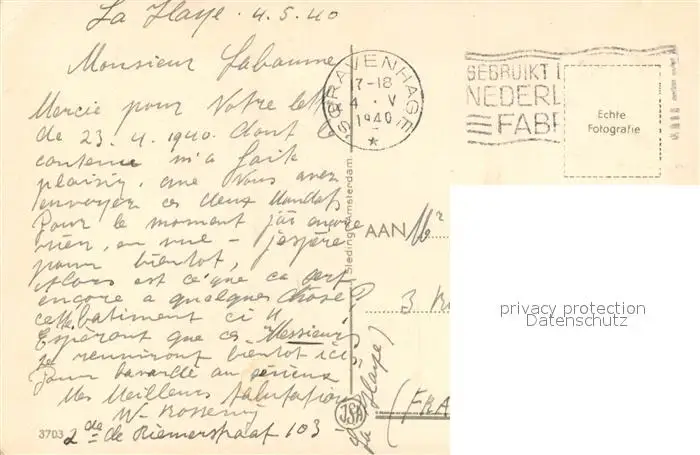 La Haye . 4.5.40
Monsieur Labaume
Mercie pour Votre lett
de 23.4.1940. dont le
contenu m'a fait
plaisir, que Vous avez
envoyer ces deux Mandats
Pour le moment j'ai encore
rien, en vue – j'espère
pour bientôt,
Alors est ce que ca sert
encore a quelques chose?
cette batiment ci
Espérant que ces Messieurs
se reuniront bientot ici,
Pour bavarder au sérieux
Mes Meilleurs Salutations
W
2de de Riemerstraat 103
(La Haye)
3703
JSA
Sleding Amsterdam
'S GRAVENHAGE
17-18
4 . V
1940
*
GEBRUIKT
NEDERL
FABR
Echte
Fotografie
AAN Mr
3
(FRA
privacy protection
Datenschutz